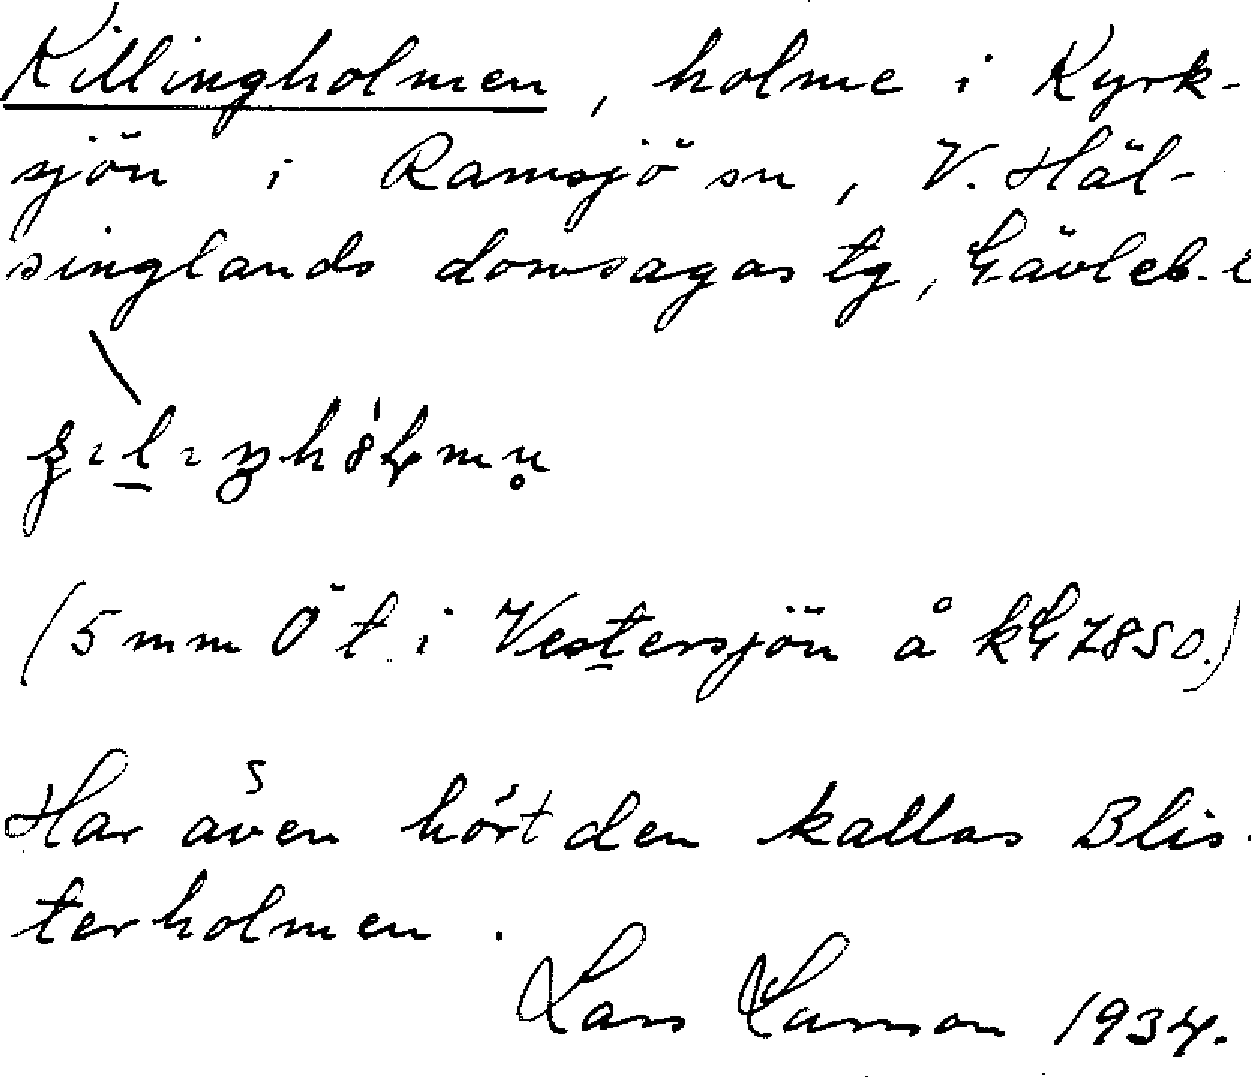 Killingholmen, holme i Kyrk-
sjön i Ramsjö sn, V. Häl-
singlands domsagas tg, Gävleb. l
(5 mm Ö t. i Vestersjön å kG 7850.)
Har även hört den kallas Blis-
terholmen.
Lars Larsson 1934.